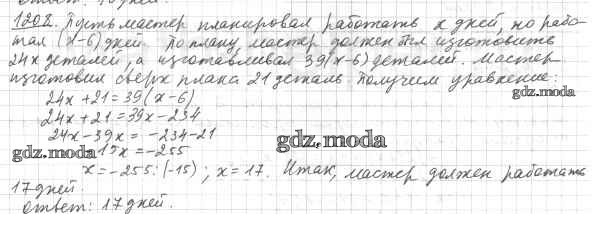 1202. Пусть мастер планировал работать х дней, но рабо-
тал (х-6) дней. По плану мастер должен был изготовить
24х деталей, а изготавливал 39(х-6) деталей. Мастер
изготовил сверх плана 21 деталь. Получим уравнение:
24х+21=39(х-6)
gdz.moda
24х+21=39х-234
24х-39х=-234-21
gdz.moda
gdz.moda
15х=-255
х=-255:(-15); х=17. Итак, мастер должен работать
17 дней.
Ответ: 17 дней.